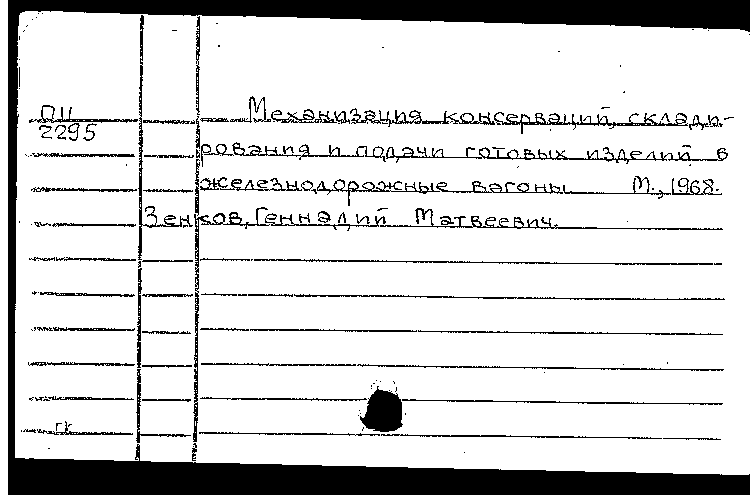 Механизация консерваций, склади-
ПЦ
2295
рования и подачи готовых изделий в
железнодорожные вагоны М., 1968.
Зенков, Геннадий Матвеевич.
гк